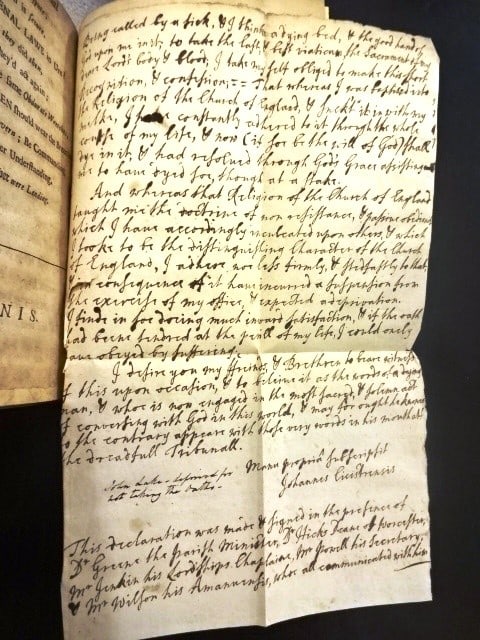 NAL LAWS
they did
they'd all again;
EN
Understanding,
were Loading.
NIS.
Being called by a sick, & I think a dying bed, & the good hand of
God upon me in it, to take the last & best viaticum, the Sacrament of my
dear Lord's body & blood, I take my self obliged to make this short
Recognition, & confession; That whereas I was baptised into
the Religion of the Church of England, & suckt it in with my
milke, I have constantly adhered to it through the whole
course of my life, & now (if soe be the will of God) shall
dye in it, & had resolved through Gods Grace assisting
me to have dyed soe, though at a stake.
And whereas that Religion of the Church of England
taught me the doctrine of non resistance, & passive obedience
which I have accordingly inculcated upon others, & which
I tooke to be the distinguishing Character of the Church
of England, I adhere noe less firmly, & stedfastly to that,
& in consequence of it have incurred a suspension from
the exercise of my office, & expected a deprivation.
I finde in soe doeing much inward satisfaction, & if the oath
had beene tendred at the perill of my life, I could only
have obeyed by suffering.
I desire you my friends, & Brethren to beare witness
of this upon occasion, & to beleive it as the words of a dying
man, & who is now engaged in the most sacred, & solemn act
of conversing with God in this world, & may for ought he knowes
to the contrary appeare with those very words in his mouth at
the dreadfull Tribunall.
Manu propriâ subscripsit
Johannes Cicistrensis
John Lake - deprived for
not taking the Oaths -
This declaration was made & signed in the presence of
Dr Greene the Parish Minister, Dr Hicks Deane of Worcester,
Mr Jenkin his Lordships Chaplaine, Mr Powell his Secretary,
& Mr Wilson his Amanuensis, who all communicated with him